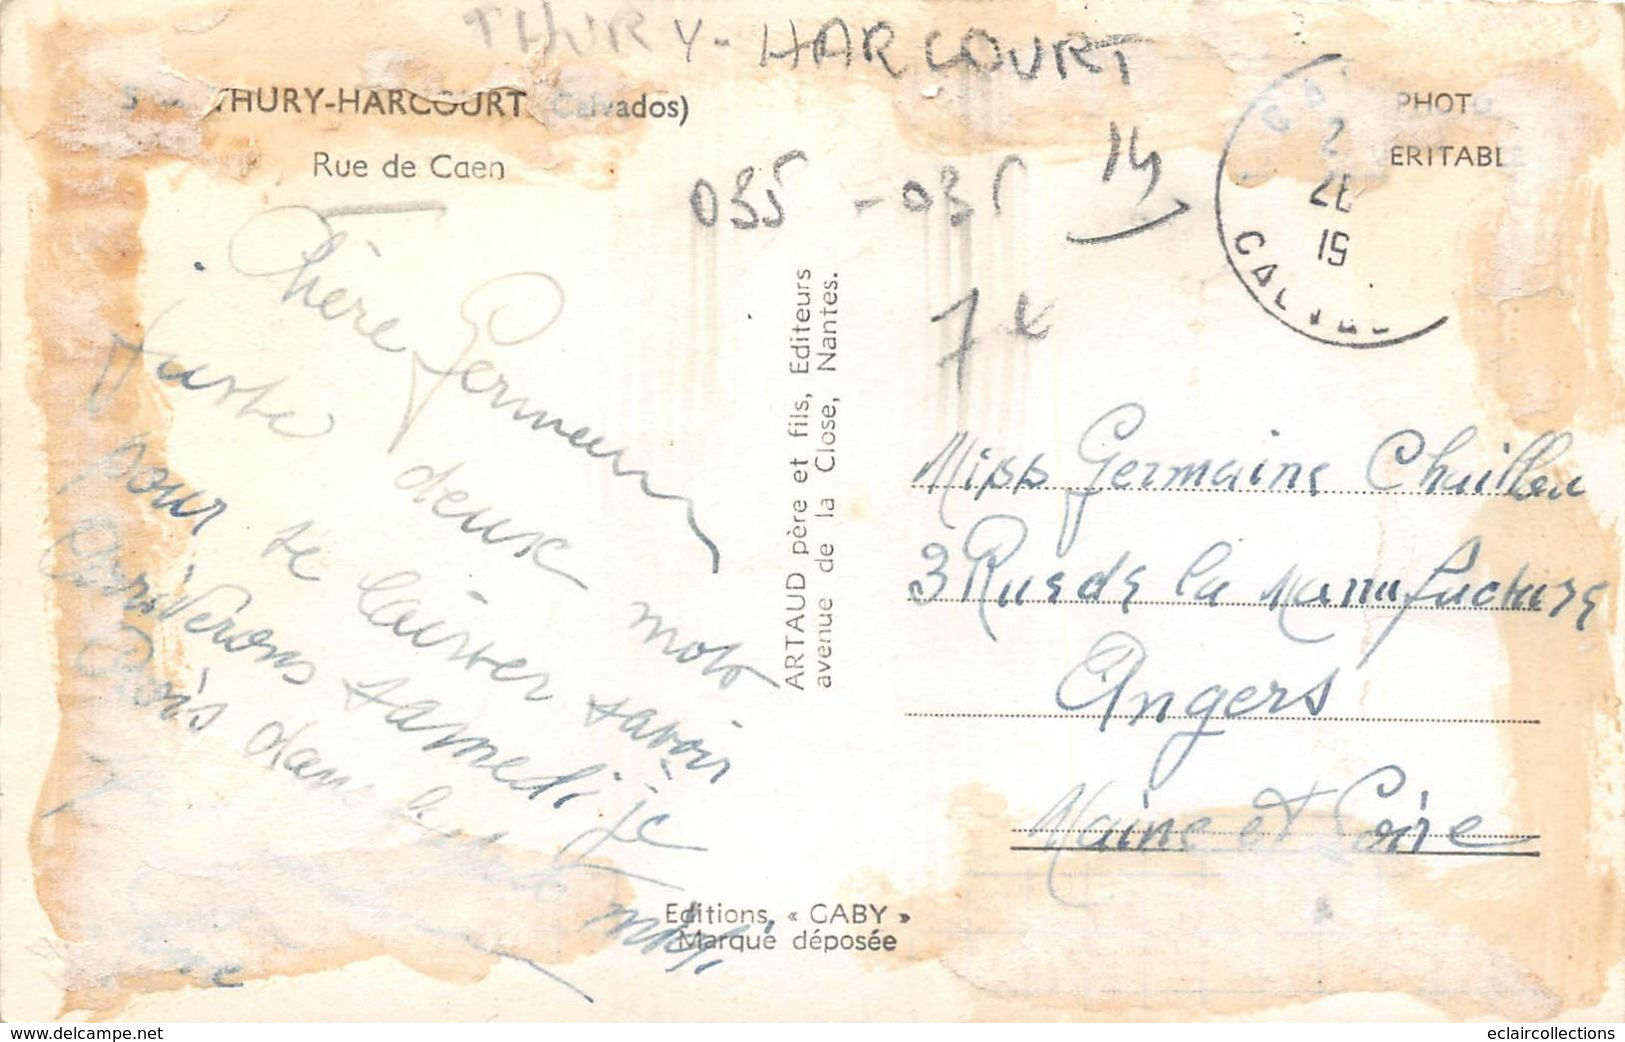 THURY-HARCOURT
THURY-HARCOURT (Calvados)
Rue de Caen
PHOTO
VERITABLE
035 - 035
14
7 €
26
19
CALVADOS
Chère Germaine
Juste deux mots
pour te laisser savoir
arriverons samedi je
Crois dans
ARTAUD père et fils, Editeurs
avenue de la Close, Nantes.
Miss Germaine Chaillou
3 Rue de la Manufacture
Angers
Maine et Loire
Editions « GABY »
Marque déposée
www.delcampe.net
eclaircollections